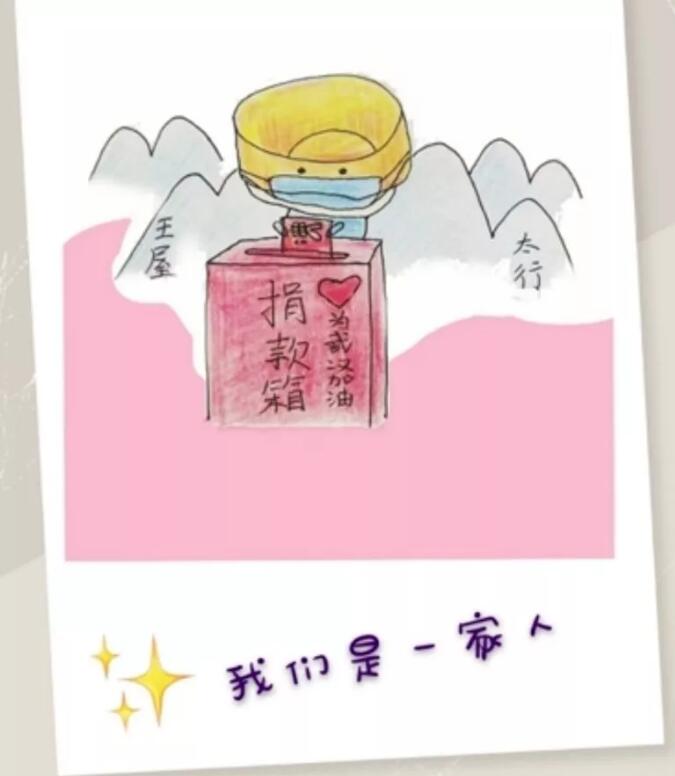 王屋
太行
捐款箱
为武汉加油
我们是一家人